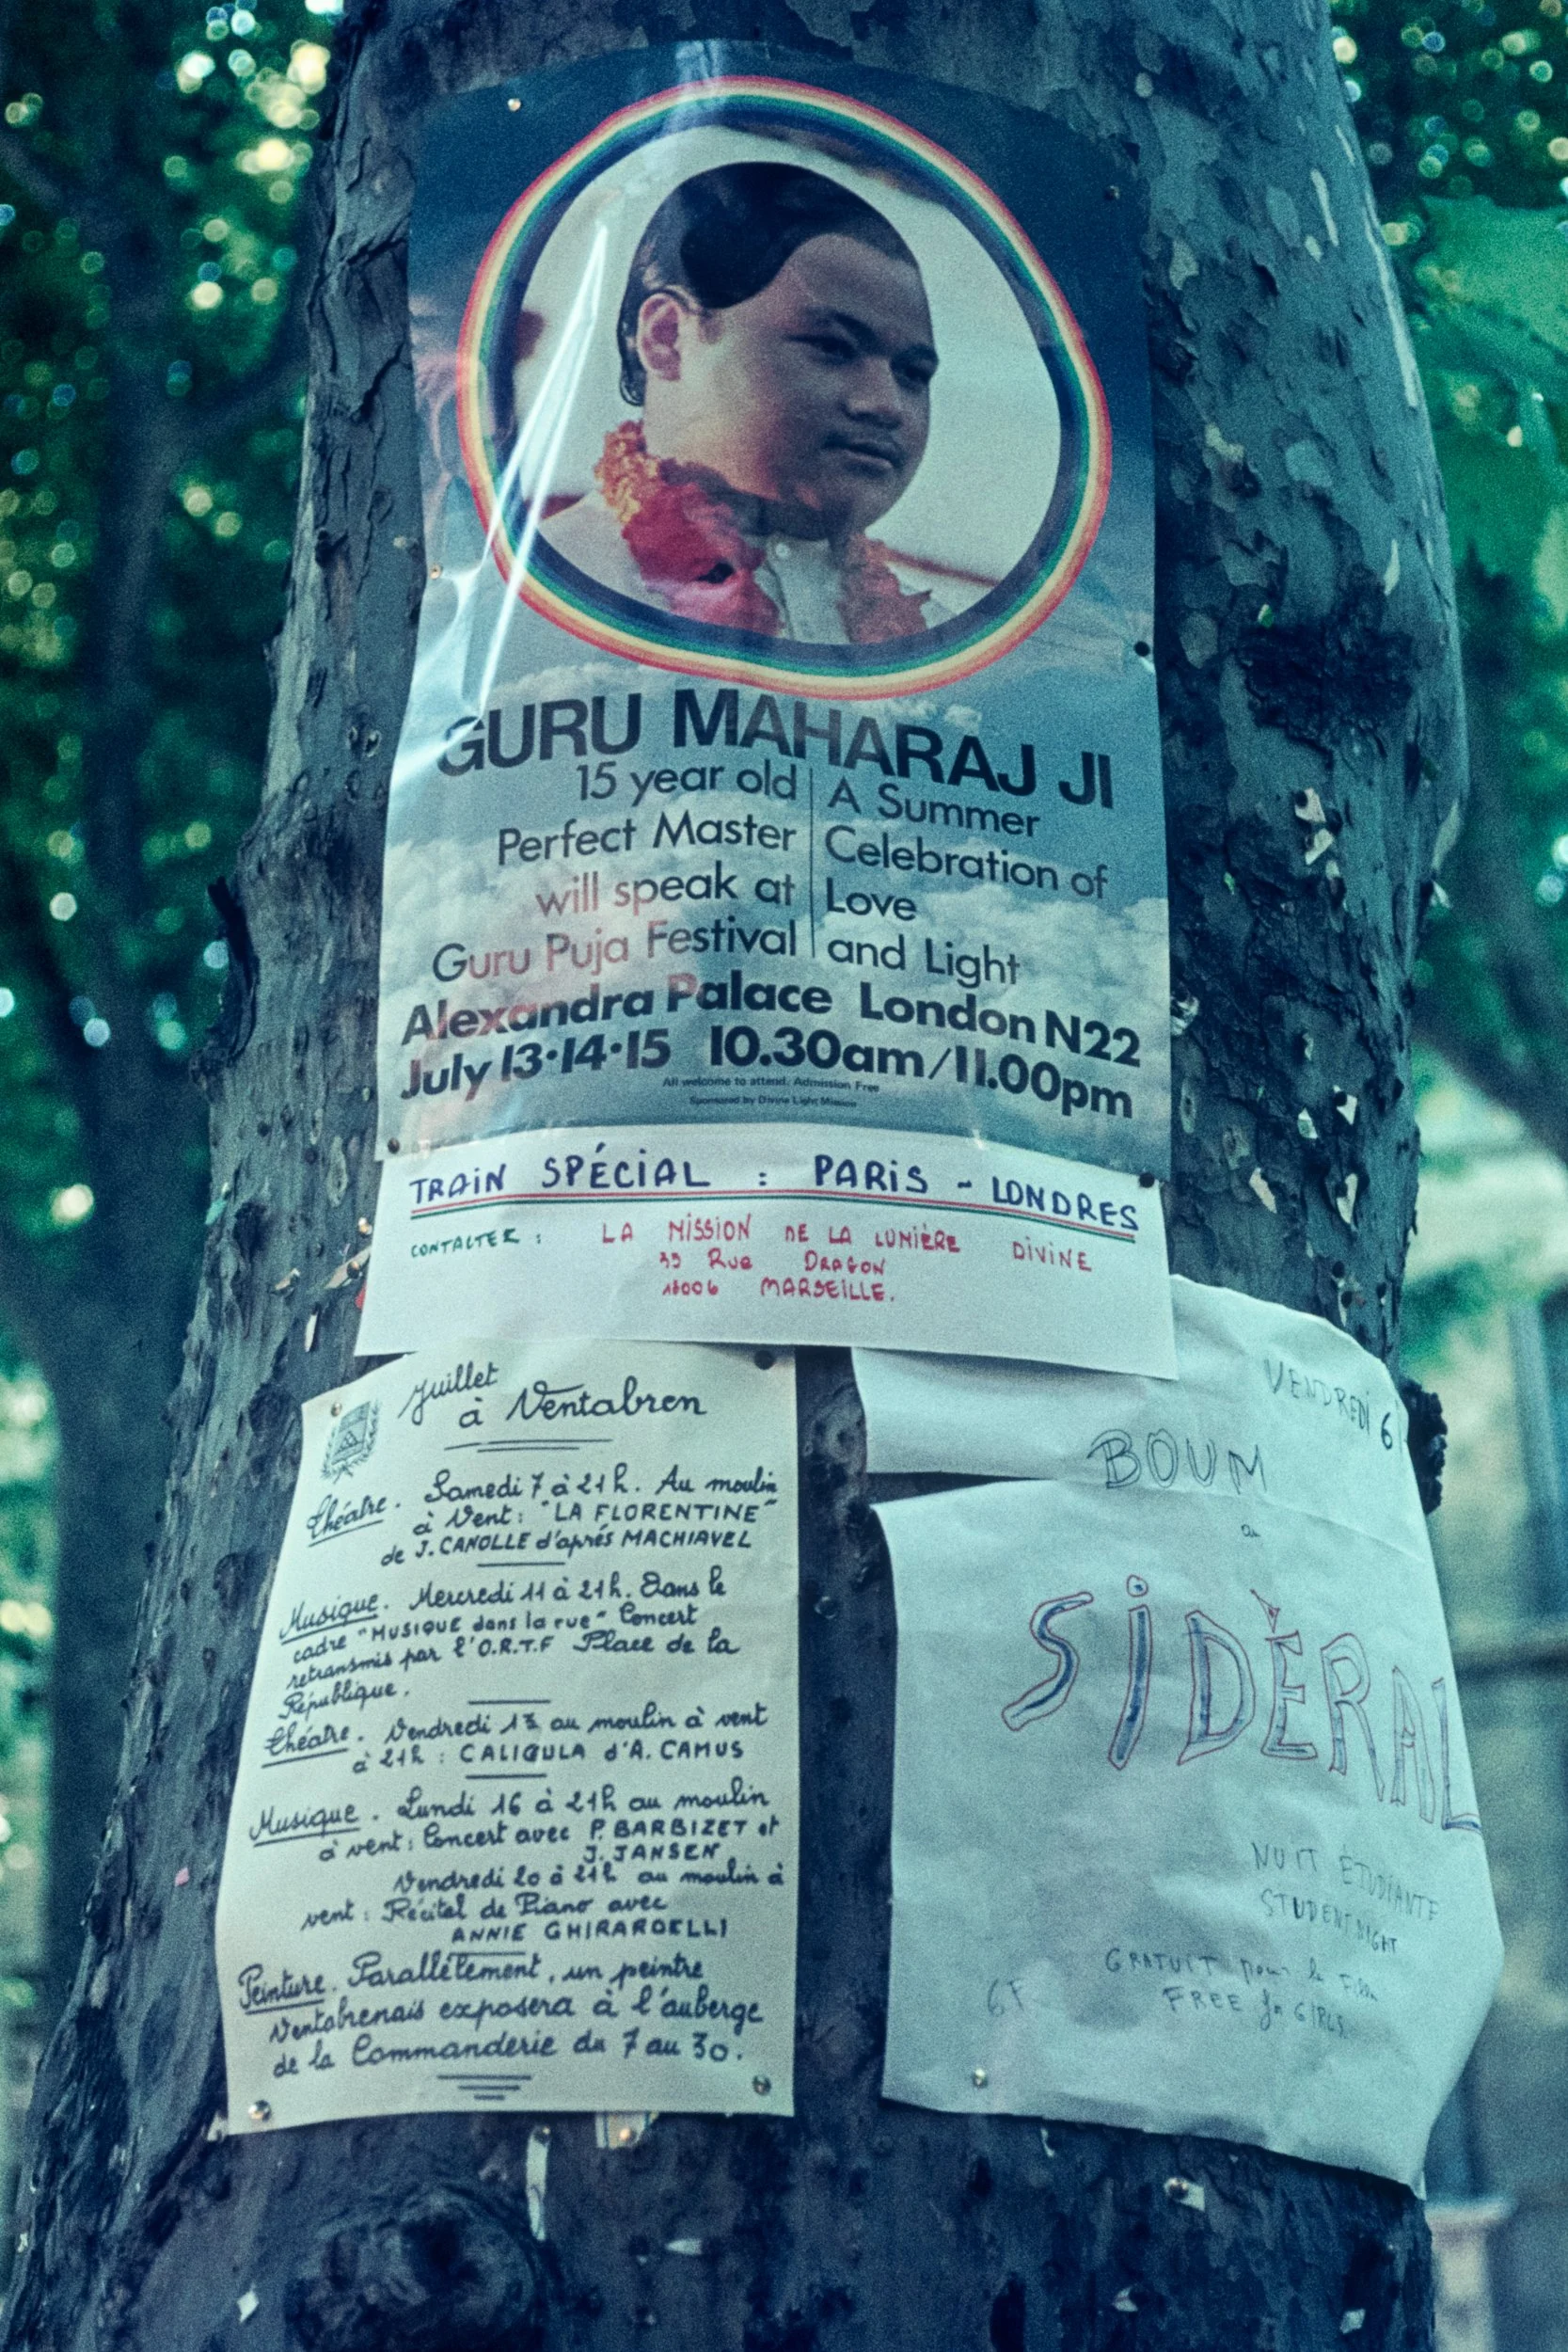 GURU MAHARAJ JI
15 year old
Perfect Master
will speak at
Guru Puja Festival
A Summer
Celebration of
Love
and Light
Alexandra Palace London N22
July 13·14·15 10.30am/11.00pm
All welcome to attend. Admission Free
Sponsored by Divine Light Mission
TRAIN SPÉCIAL : PARIS - LONDRES
CONTACTER : LA MISSION DE LA LUMIÈRE DIVINE
Rue DRAGON
13006 MARSEILLE.
Juillet
à Ventabren
Théatre. Samedi 7 à 21h. Au moulin
à Vent: "LA FLORENTINE"
de J. CANOLLE d'aprés MACHIAVEL
Musique. Mercredi 11 à 21h. Dans le
cadre "MUSIQUE dans la rue" Concert
retransmis par l'O.R.T.F Place de la
République.
Théatre. Vendredi 13 au moulin à vent
à 21h : CALIGULA d'A. CAMUS
Musique. Lundi 16 à 21h au moulin
à vent: Concert avec P. BARBIZET et
J. JANSEN
Vendredi 20 à 21h au moulin à
vent: Récital de Piano avec
ANNIE GHIRARDELLI
Peinture. Parallélement, un peintre
Ventabrenais exposera à l'auberge
de la Commanderie du 7 au 30.
VENDREDI 6
BOUM
au
SIDÈRAL
NUIT ÉTUDIANTE
STUDENT NIGHT
GRATUIT pour les
6F FREE for GIRLS